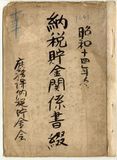 昭和十四年
納税貯金関係書綴
納税貯金会